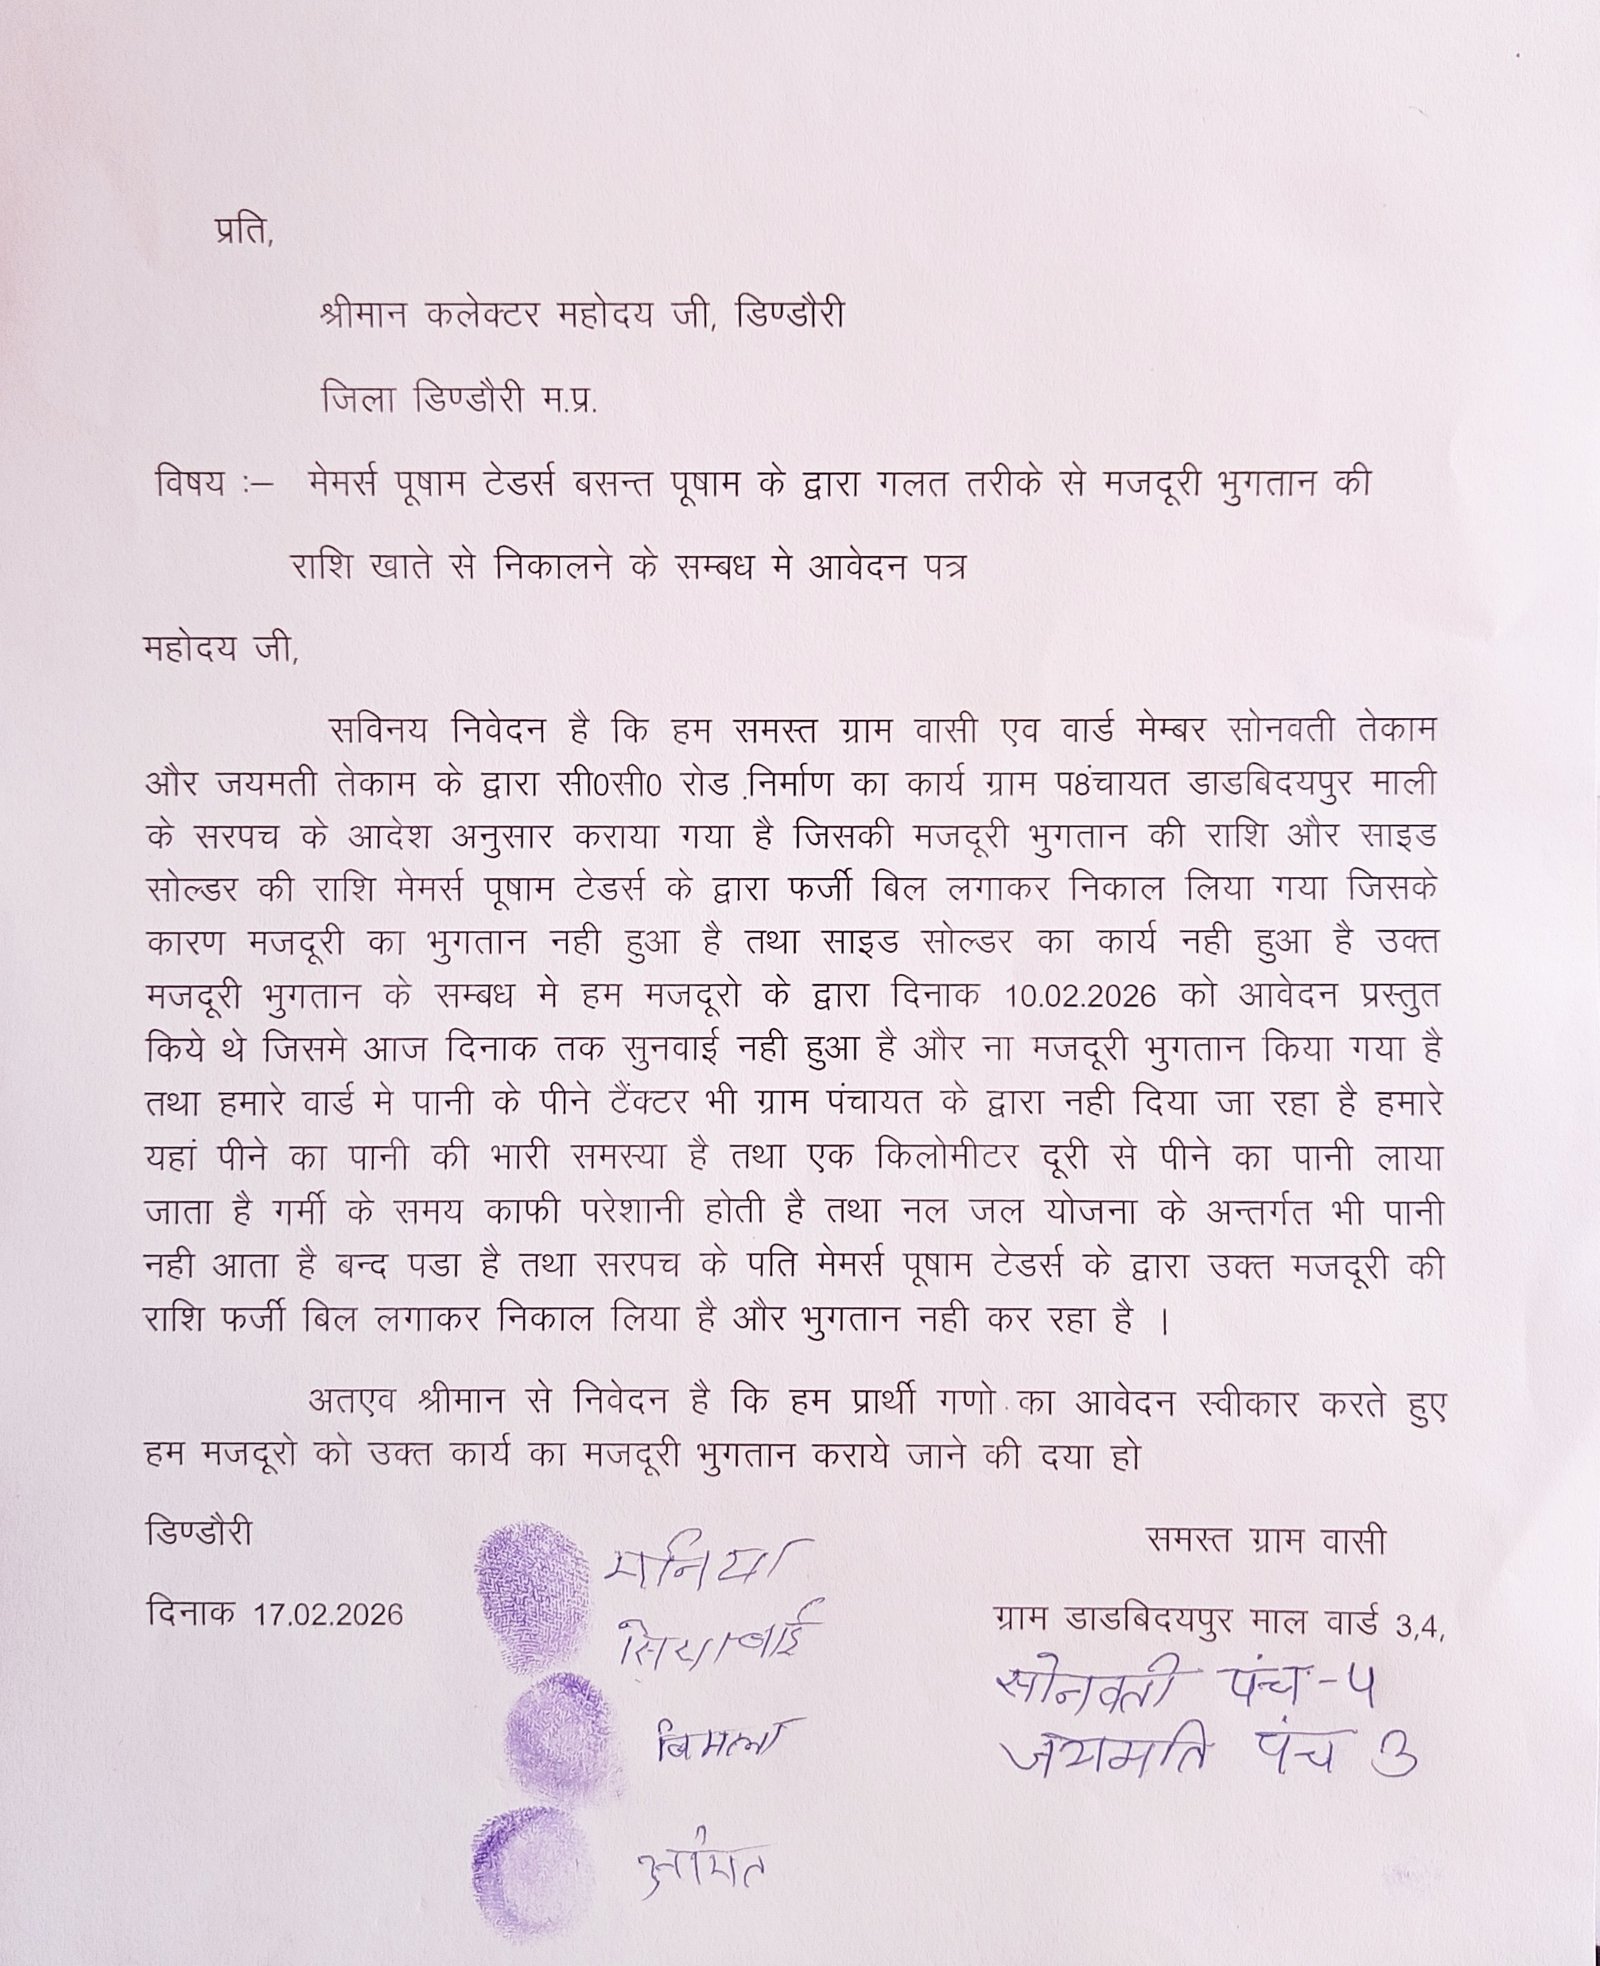 प्रति,
श्रीमान कलेक्टर महोदय जी, डिण्डौरी
जिला डिण्डौरी म.प्र.
विषय :– मेमर्स पूषाम टेडर्स बसन्त पूषाम के द्वारा गलत तरीके से मजदूरी भुगतान की
राशि खाते से निकालने के सम्बध मे आवेदन पत्र
महोदय जी,
सविनय निवेदन है कि हम समस्त ग्राम वासी एव वार्ड मेम्बर सोनवती तेकाम
और जयमती तेकाम के द्वारा सी0सी0 रोड .निर्माण का कार्य ग्राम प8ंचायत डाडबिदयपुर माली
के सरपच के आदेश अनुसार कराया गया है जिसकी मजदूरी भुगतान की राशि और साइड
सोल्डर की राशि मेमर्स पूषाम टेडर्स के द्वारा फर्जी बिल लगाकर निकाल लिया गया जिसके
कारण मजदूरी का भुगतान नही हुआ है तथा साइड सोल्डर का कार्य नही हुआ है उक्त
मजदूरी भुगतान के सम्बध मे हम मजदूरो के द्वारा दिनाक 10.02.2026 को आवेदन प्रस्तुत
किये थे जिसमे आज दिनाक तक सुनवाई नही हुआ है और ना मजदूरी भुगतान किया गया है
तथा हमारे वार्ड मे पानी के पीने टैंक्टर भी ग्राम पंचायत के द्वारा नही दिया जा रहा है हमारे
यहां पीने का पानी की भारी समस्या है तथा एक किलोमीटर दूरी से पीने का पानी लाया
जाता है गर्मी के समय काफी परेशानी होती है तथा नल जल योजना के अन्तर्गत भी पानी
नही आता है बन्द पडा है तथा सरपच के पति मेमर्स पूषाम टेडर्स के द्वारा उक्त मजदूरी की
राशि फर्जी बिल लगाकर निकाल लिया है और भुगतान नही कर रहा है ।
अतएव श्रीमान से निवेदन है कि हम प्रार्थी गणो का आवेदन स्वीकार करते हुए
हम मजदूरो को उक्त कार्य का मजदूरी भुगतान कराये जाने की दया हो
डिण्डौरी
समस्त ग्राम वासी
दिनाक 17.02.2026
ग्राम डाडबिदयपुर माल वार्ड 3,4,
मनिया
सियाबाई
बिमला
सोनवती पंच-4
जयमति पंच 3